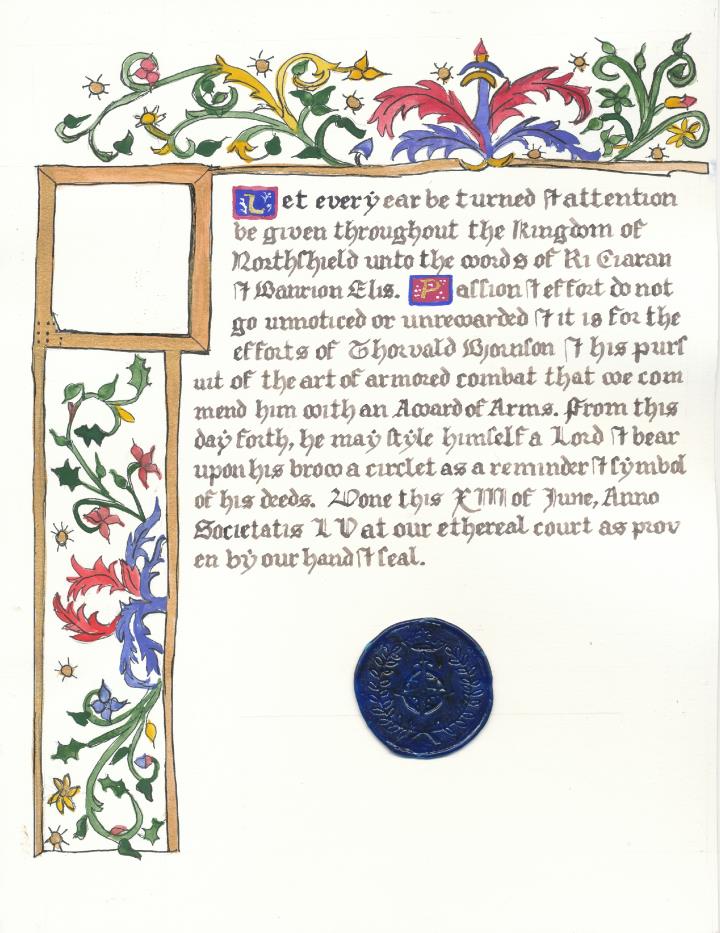 Let every ear be turned & attention
be given throughout the Kingdom of
Northshield unto the words of Ri Ciaran
& Banrion Elis. Passion & effort do not
go unnoticed or unrewarded & it is for the
efforts of Thorvald Bjornson & his purs
uit of the art of armored combat that we com
mend him with an Award of Arms. From this
day forth, he may style himself a Lord & bear
upon his brow a circlet as a reminder & symbol
of his deeds. Done this XIII of June, Anno
Societatis LV at our ethereal court as prov
en by our hand & seal.